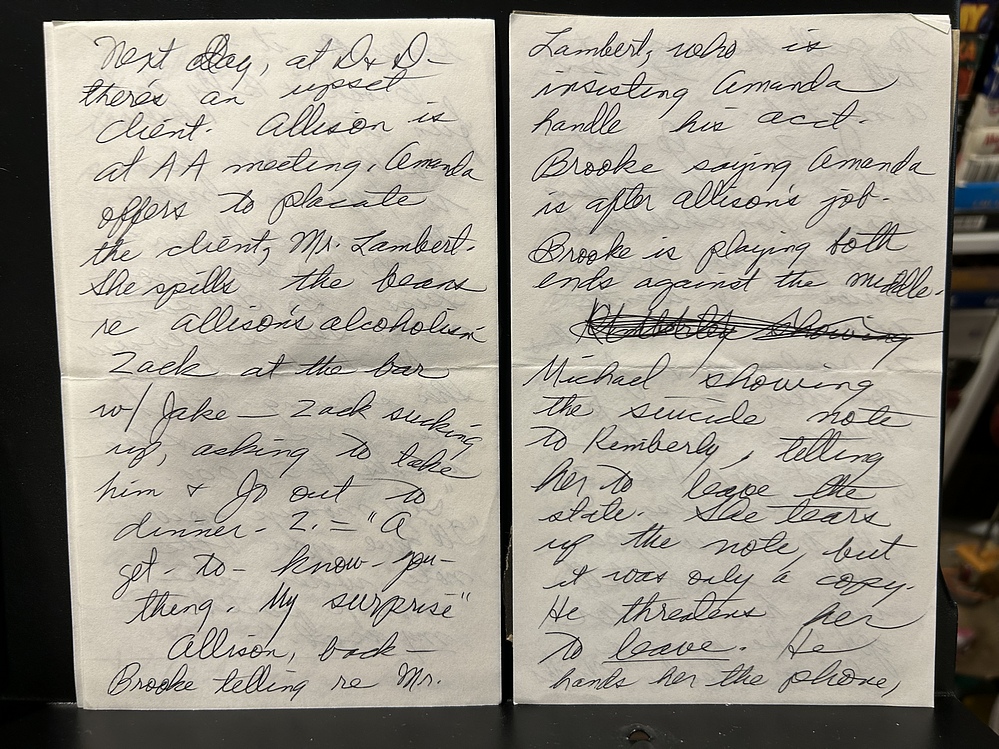 Next day, at D & D—
there's an upset
client. Allison is
at AA meeting. Amanda
offers to placate
the client, Mr. Lambert.
She spills the beans
re Allison's alcoholism
Zack at the bar
w/ Jake — Zack sucking
up, asking to take
him & Jo out to
dinner - Z. = "A
get-to-know-you-
thing. My surprise"
Allison, back —
Brooke telling re Mr.
Lambert, who is
insisting Amanda
handle his acct.
Brooke saying Amanda
is after Allison's job.
Brooke is playing both
ends against the middle.
showing
Michael showing
the suicide note
to Kimberly, telling
her to leave the
state. She tears
up the note, but
it was only a copy.
He threatens her
to leave. He
hands her the phone,